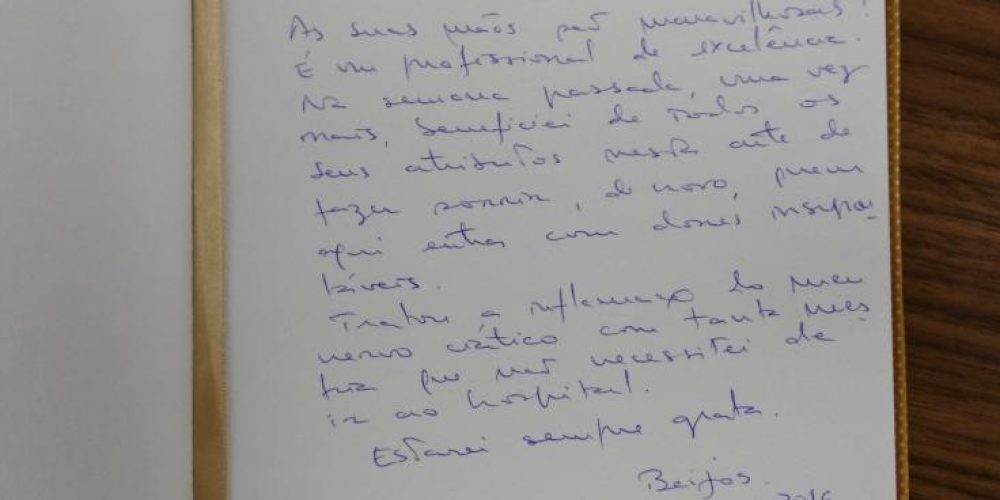 As suas mãos são maravilhosas!
É um profissional de excelência.
Na semana passada, uma vez
mais, beneficiei de todos os
seus atributos nesta arte de
fazer sorrir, de novo, quem
aqui entra com dores insupor-
táveis.
Tratou a inflamação do meu
nervo ciático com tanta mes-
tria que não necessitei de
ir ao hospital.
Estarei sempre grata.
Beijos.
2016